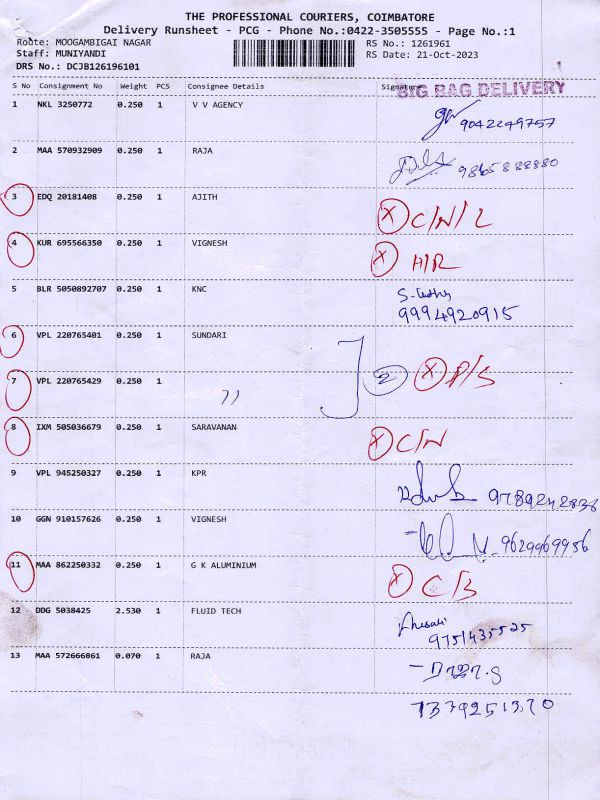 THE PROFESSIONAL COURIERS, COIMBATORE
Delivery Runsheet - PCG - Phone No.:0422-3505555 - Page No.:1
Route: MOOGAMBIGAI NAGAR RS No.: 1261961
Staff: MUNIYANDI RS Date: 21-Oct-2023
DRS No.: DCJB126196101
BIG BAG DELIVERY
S No Consignment No Weight PCS Consignee Details Signature
1 NKL 3250772 0.250 1 V V AGENCY 9042249757
2 MAA 570932909 0.250 1 RAJA 9865888880
3 EDQ 20181408 0.250 1 AJITH X C/N/L
4 KUR 695566350 0.250 1 VIGNESH X H/R
5 BLR 5050892707 0.250 1 KNC
9994920915
6 VPL 220765401 0.250 1 SUNDARI
7 VPL 220765429 0.250 1 " 2 X P/S
8 IXM 505036679 0.250 1 SARAVANAN X C/N
9 VPL 945250327 0.250 1 KPR 9789242838
10 GGN 910157626 0.250 1 VIGNESH 9629969956
11 MAA 862250332 0.250 1 G K ALUMINIUM X C/B
12 DDG 5038425 2.530 1 FLUID TECH
9751435525
13 MAA 572666861 0.070 1 RAJA
7339251370